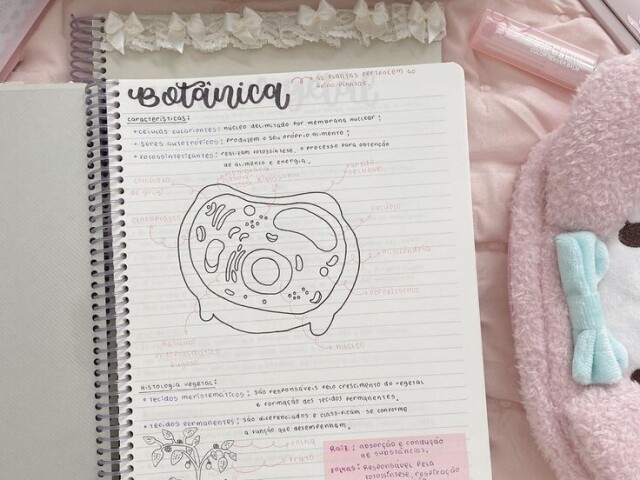 Botânica
as plantas pertencem ao
reino Plantae.
características:
+ células eucariontes: núcleo delimitado por membrana nuclear;
+ seres autotróficos: produzem o seu próprio alimento;
+ fotossintetizantes: realizam fotossíntese, o processo para obtenção
de alimento e energia.
parede
celulare
complexo
de golgi
cloroplasto
vacúolo
núcleo
Histologia vegetal:
+ tecidos meristemáticos: são responsáveis pelo crescimento do vegetal
e formação dos tecidos permanentes.
+ tecidos permanentes: são diferenciados e classificam-se conforme
a função que desempenham.
folha
fruto
Raiz: absorção e condução
de substâncias.
Folhas: Responsável pela
fotossíntese, respiração